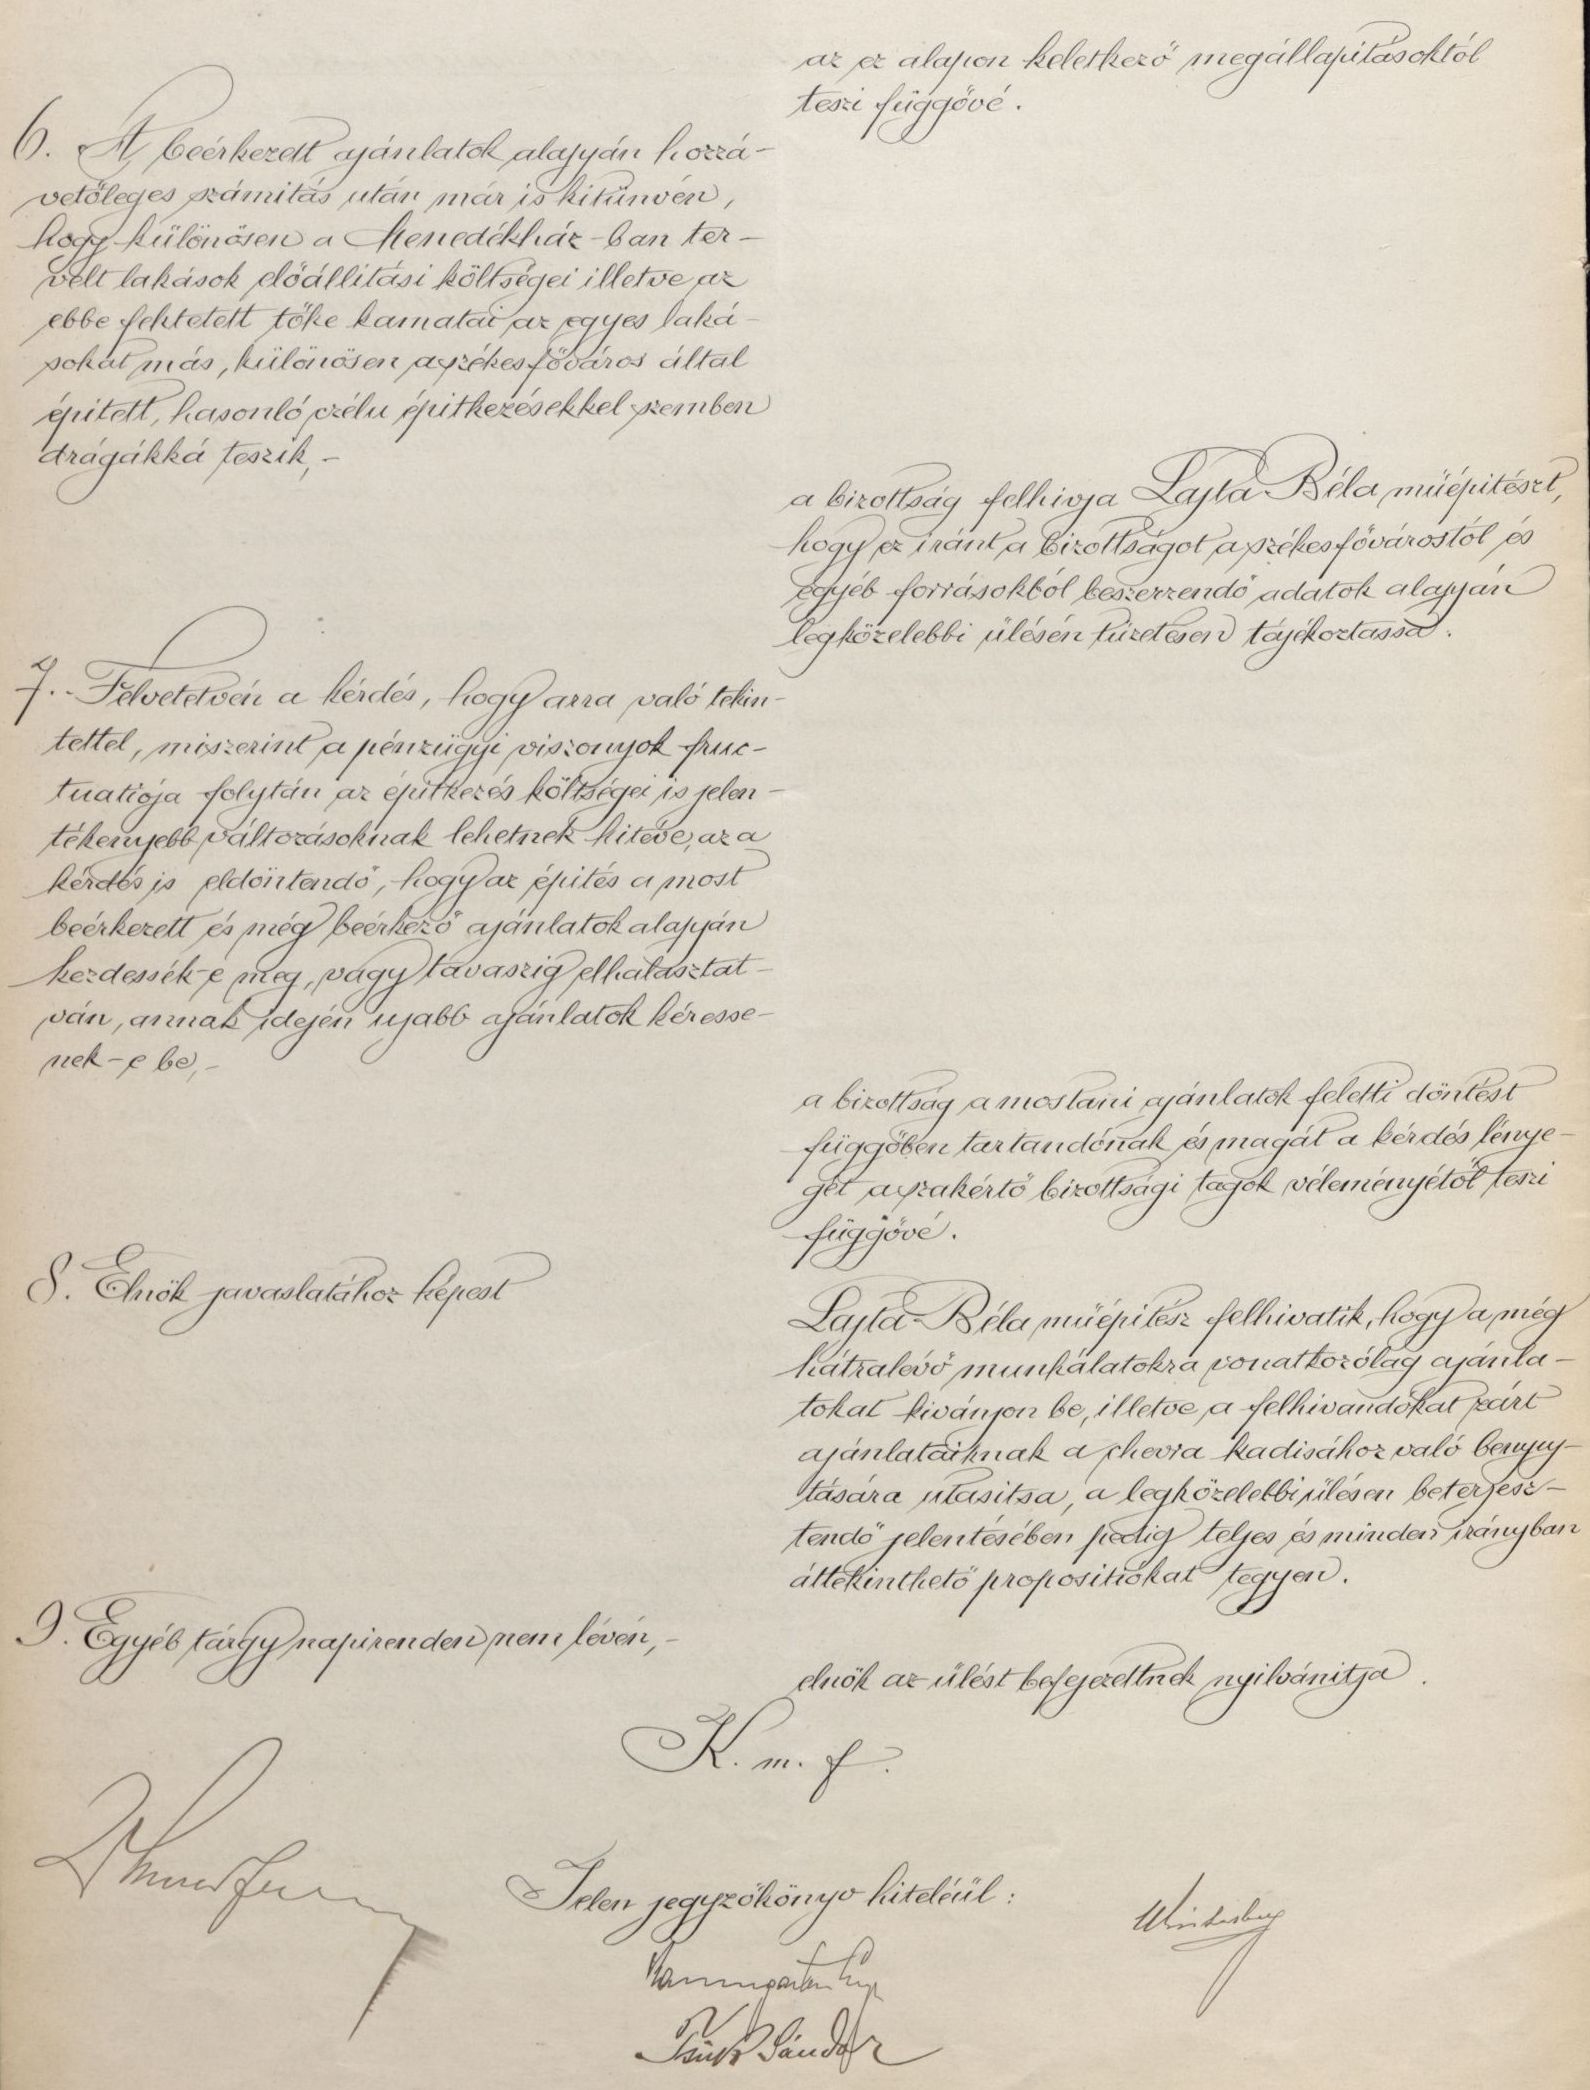 az ez alapon keletkező megállapitásoktól
teszi függővé.
6. A beérkezett ajánlatok alapján hozzá-
vetőleges számitás után már is kitünvén,
hogy különösen a Menedékház-ban ter-
velt lakások előállitási költségei illetve az
ebbe fektetett tőke kamatai az egyes laká-
sokat más, különösen a székesfőváros által
épitett, hasonló czélu épitkezésekkel szemben
drágákká teszik,-
a bizottság felhivja Lajta Béla müépitészt,
hogy ez iránt a bizottságot a székesfővárostól és
egyéb forrásokból beszerzendő adatok alapján
legközelebbi ülésén tüzetesen tájékoztassa.
7. Felvetetvén a kérdés, hogy arra való tekin-
tettel, miszerint a pénzügyi viszonyok fruc-
tuatiója folytán az épitkezés költségei is jelen-
tékenyebb változásoknak lehetnek kitéve, az a
kérdés is eldöntendő, hogy az épités a most
beérkezett és még beérkező ajánlatok alapján
kezdessék-e meg, vagy tavaszig elhalasztat-
ván, annak idején ujabb ajánlatok kéresse-
nek-e be,-
a bizottság a mostani ajánlatok feletti döntést
függőben tartandónak és magát a kérdés lénye-
gét a szakértő bizottsági tagok véleményétől teszi
függővé.
8. Elnök javaslatához képest
Lajta Béla müépitész felhivatik, hogy a még
hátralévő munkálatokra vonatkozólag ajánla-
tokat kivánjon be, illetve a felhivandókat zárt
ajánlataiknak a chevra kadisához való benyuj-
tására utasitsa, a legközelebbi ülésen beterjesz-
tendő jelentésében pedig teljes és minden irányban
áttekinthető propositiókat tegyen.
9. Egyéb tárgy napirenden nem lévén,-
elnök az ülést befejezettnek nyilvánitja.
K. m. f.
Jelen jegyzőkönyv hiteléül:
Sándor